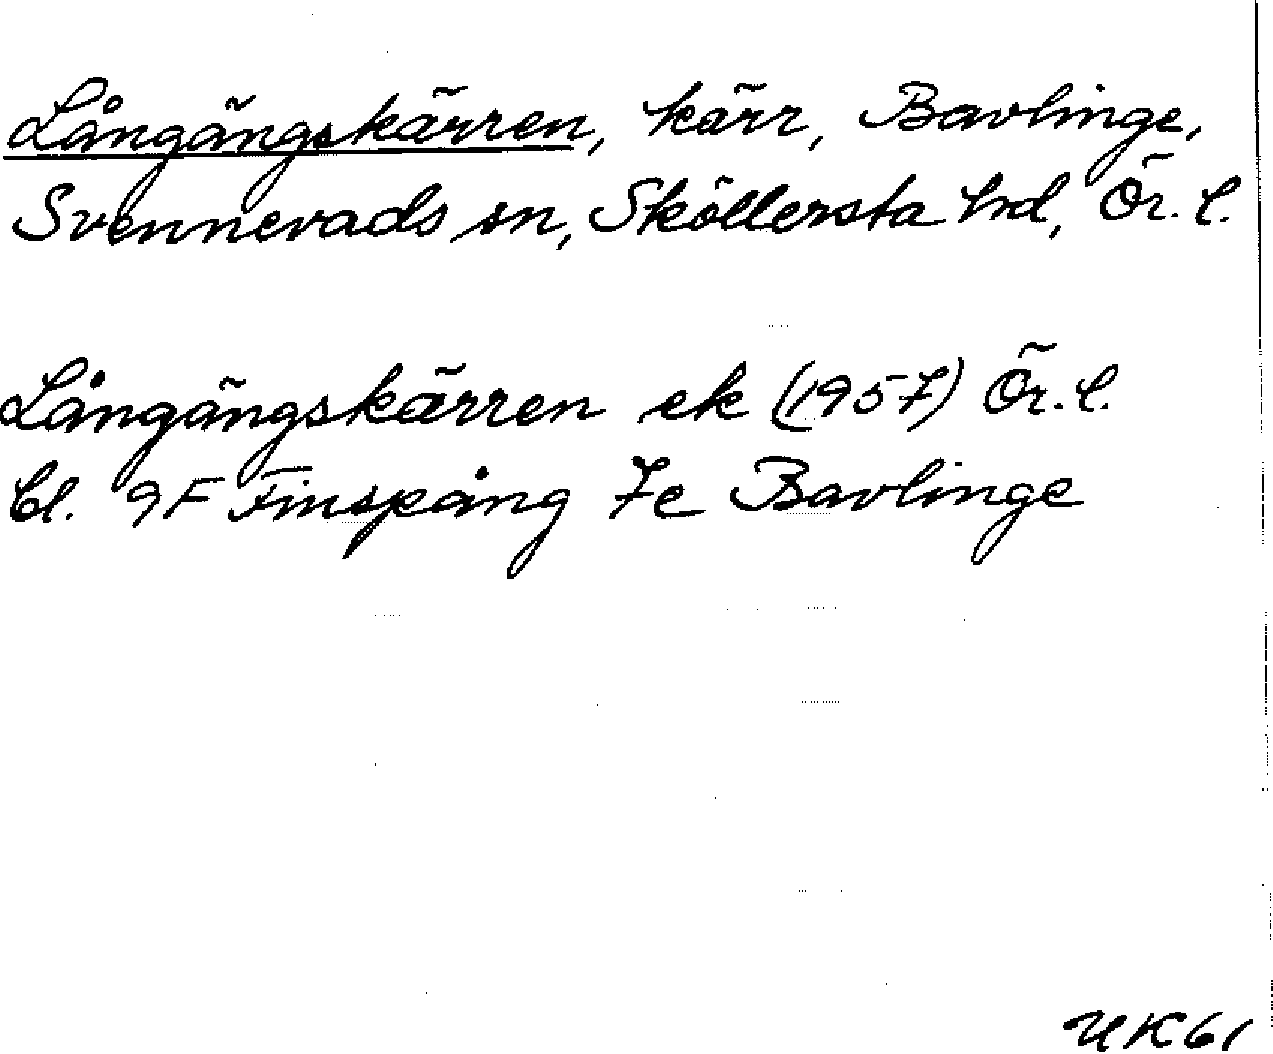 Långängskärren, kärr, Bavlinge,
Svennevads sn, Sköllersta hd, Ör. l.
Långängskärren ek (1957) Ör. l.
bl. 9F Finspång 7e Bavlinge
UK61